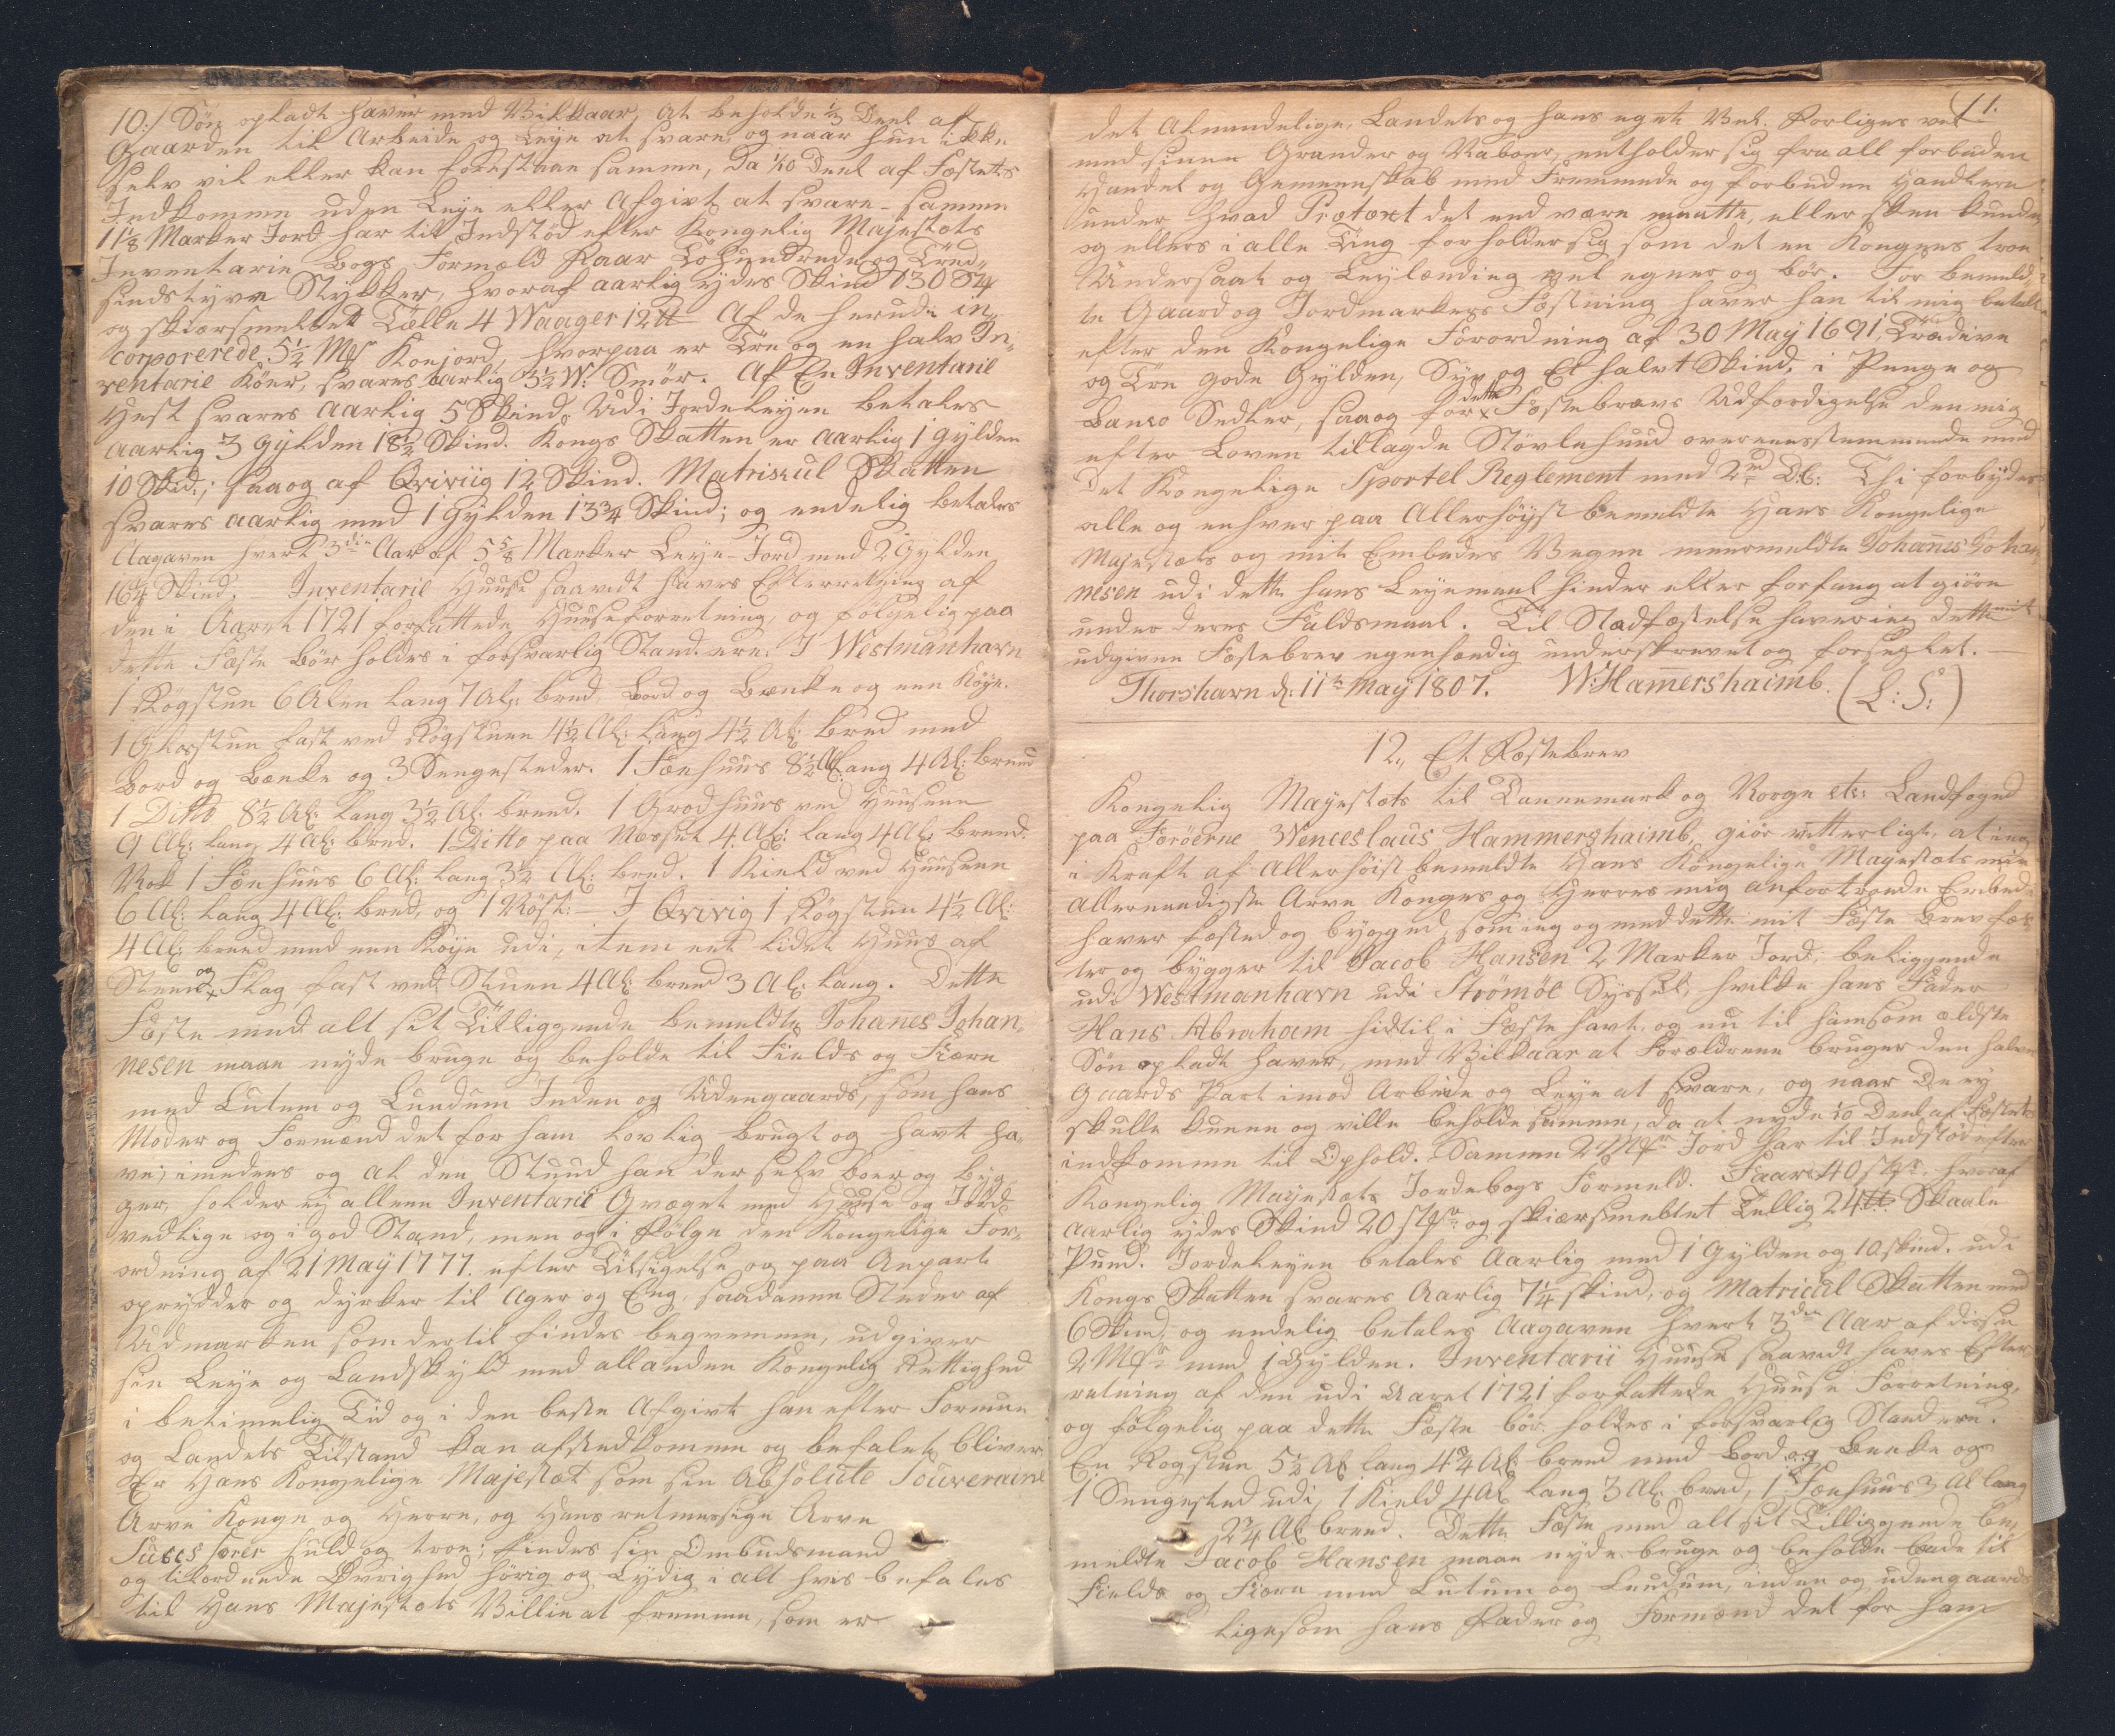 10./ Søn opladt haver med Vilkaar, at beholde 1/3 Deel af
Gaarden til Arbeide og Leje at svare, og naar hun ikke
selv vil eller kan forestaae samme, da 1/10 Deel af Fæstets
Indkomme uden Leje eller Afgivt at svare - samme
11 1/8 Marker Jord har til Indstød efter Kongelig Majestæts
Inventarie Bogs Formæld Faar Tohundrede og Tred-
sindstyve Stykker, hvoraf aarlig ydes Skind 130 St
og skiærsmeltet Tælle 4 Waager 12 ℔ Af de herudi in-
corporerede 5 1/2 Mk Koejord, hvorpaa er Tre og en halv In-
ventarie Køer, svares aarlig 3 1/2 W: Smør. Af En Inventarie
Hest svares aarlig 5 Skind. Udi Jordelejen betales
aarlig 3 Gylden 18 1/2 Skind. Kongs Skatten er aarlig 1 Gylden
10 Skd.; saa og af Qviviig 12 Skind. Matriscul Skatten
svares aarlig med 1 Gylden 13 3/4 Skind; og endelig betales
Aagaven hvert 3die Aar af 5 5/8 Marker Leje-Jord med 2 Gylden
16 1/4 Skind. - Inventarie Huuse saavidt haves Efterretning af
den i Aaret 1721 forfattede Huuseforretning, og følgelig paa
dette Fæste bør holdes i forsvarlig Stand ere: I Westmanhavn
1 Røgstue 6 Alen lang 7 Al: bred Bord og Bænke og een Køye.
1 Glasstue fast ved Røgstuen 4 1/2 Al: lang 4 1/2 Al: bred med
Bord og Bænke og 3 Sengesteder. 1 Fæehuus 8 1/2 Al: lang 4 Al: breed
1 Ditto 8 1/2 Al: lang 3 1/2 Al: breed. 1 Grodhuus ved Huusene
9 Al: lang 4 Al: bred. 1 Ditto paa Næsset 4 Al: lang 4 Al: breed.
Nok 1 Fæehuus 6 Al: lang 3 1/2 Al: bred. 1 Kield ved Huusene
6 Al: lang 4 Al: bred, og 1 Røst: - I Qvivig 1 Røgstue 4 1/2 Al:
4 Al: breed med een Køye udi, item eet lidet Huus af
Steen og Flag fast ved Stuen 4 Al: breed 3 Al: lang. Dette
Fæste med alt sit Tilliggende bemeldte Johanes Johan-
nesen maae nyde bruge og beholde til Fields og Fiære
med Lutum og Lundum Inden og Udengaards, som hans
Moder og Formænd det for ham lovlig brugt og havt ha-
ve; imedens og at den Stund han der selv boer og byg-
ger, holder ej alleene Inventarii Qvæget med Huuse og Jord
vedlige og i god Stand, men og i Følge den Kongelige For-
ordning af 21 May 1777. efter Tilsigelse og paa Anpart
oprydder og dyrker til Ager og Eng, saadanne Steder af
Udmarken som dertil findes beqvemme, udgiver
sin Leje og Landskyld med all anden Kongelig Rettighed
i betimelig Tid og i den beste Afgivt han efter Formue
og Landets Tilstand kan afstedkomme og befalet bliver
Er Hans Kongelige Majestæt som sin Absolute Souveraine
Arve Konge og Herre, og Hans retmessige Arve
Successorer huld og troe; findes sin Ombudsmand
og tilordnede Øvrighed hørig og Lydig i alt hves befales
til Hans Majestæts Villie at fremme, som er
11.
det Almindelige, Landets og hans eget Vel. Forliges vel
med sinne Grander og Naboer, entholder sig fra all forbuden
Handel og Gemeenskab med Fremmede og forbudne Handlere
under hvad Prætext det end være maatte, eller skee kunde,
og ellers i alle Ting forholder sig som det en Kongens troe
Undersaat og Leylænding vel egner og bør. For bemeld-
te Gaard og Jordmarkers Fæstning haver han til mig betalt
efter den Kongelige Forordning af 30 May 1691, Tredive
og Tre gode Gylden, Syv og Et halvt Skind, i Penge og
Banco Sedler, saa og for dette Fæstebrevs Udfærdigelse den mig
efter Loven tillagde Støvlehuud overeensstemmende med
det Kongelige Sportel Reglement med 2 rd D:C: Thi forbydes
alle og enhver paa Allerhøyst bemeldte Hans Kongelige
Majestæts og mit Embedes Vegne meermeldte Johannes Johan-
nesen udi dette hans Leyemaal hinder eller forfang at giøre
under deres Faldsmaal. Til Stadfæstelse haver jeg dette mit
udgivne Fæstebrev egenhændig underskrevet og forseglet.
Thorshavn d: 11te May 1807. W: Hamershaimb. (L: S:)
12., Et Fæstebrev
Kongelig Mayestæts til Dannemark og Norge etc: Landfoged
paa Færöerne Wenceslaus Hammershaimb, giør vitterligt, at jeg
i Kraft af Allerhøist bemeldte Hans Kongelige Mayestæts min
allernaadigste Arve Konges og Herres mig anfortroede Embede
haver fæsted og bygged, som jeg og med dette mit Fæste Brev fæs-
ter og bygger til Jacob Hansen 2 Marker Jord, beliggende
udi Westmanhavn udi Strømöe Syssel, hvilke hans Fader
Hans Abraham hidtil i Fæste havt, og nu til ham som ældste
Søn opladt haver, med Vilkaar at Forældrene bruger den halve
Gaards Part imod Arbeide og Leje at svare, og naar De ey
skulle kunne og ville beholde samme, da at nyde 1/10 Deel af Fæstets
indkomme til Ophold. Samme 2 Mkr Jord har til Indstød efter
Kongelig Mayestæts Jordebogs Formeld. Faar 40 stkr hvoraf
aarlig ydes Skind 20 stkr og skiærsmeltet Tellig 24 ℔ Skaale
Pund. Jordelejen betales Aarlig med 1 Gylden og 10 skind. udi
Kongs Skatten svares Aarlig 7 1/4 skind, og Matricul Skatten med
6 Skind, og endelig betales Aagaven hvert 3die Aar af disse
2 Mkr med 1 Gylden. Inventarii Huuse saavidt haves Efter-
retning af den udi Aaret 1721 forfattede Huuse Forretning,
og følgelig paa dette Fæste bør holdes i forsvarlig Stand ere.
En Røgstue 5 1/2 Al lang 4 3/4 Al: breed med Bord og Benke og
1 Sengested udi, 1 Kield 4 Al lang 3 Al: bred, 1 Fæehuus 3 Al lang
2 3/4 Al breed. Dette Fæste med alt sit Tilliggende be-
meldte Jacob Hansen maae nyde bruge og beholde baade til
Fields og Fiære med Lutum og Lundum, inden og udengaards
ligesom hans Fader og Formænd det for ham